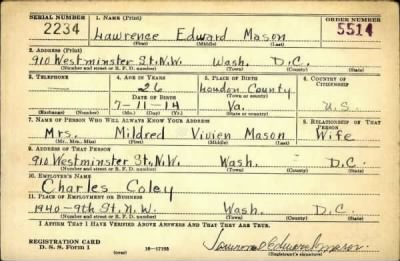 SERIAL NUMBER 1. NAME (Print) ORDER NUMBER
2234 Lawrence Edward Mason 5514
(First) (Middle) (Last)
2. ADDRESS (Print)
910 Westminster St. N.W. Wash. D.C.
(Number and street or R. F. D. number) (Town) (County) (State)
3. TELEPHONE 4. AGE IN YEARS 5. PLACE OF BIRTH 6. COUNTRY OF CITIZENSHIP
26 Loudon County
DATE OF BIRTH (Town or county)
7-11-14 Va. U.S.
(Exchange) (Number) (Mo.) (Day) (Yr.) (State or country)
7. NAME OF PERSON WHO WILL ALWAYS KNOW YOUR ADDRESS 8. RELATIONSHIP OF THAT PERSON
Mrs. Mildred Vivien Mason Wife
(Mr., Mrs., Miss) (First) (Middle) (Last)
9. ADDRESS OF THAT PERSON
910 Westminster St. N.W. Wash. D.C.
(Number and street or R. F. D. number) (Town) (County) (State)
10. EMPLOYER'S NAME
Charles Coley
11. PLACE OF EMPLOYMENT OR BUSINESS
1940-9th St. N.W. Wash. D.C.
(Number and street or R. F. D. number) (Town) (County) (State)
I AFFIRM THAT I HAVE VERIFIED ABOVE ANSWERS AND THAT THEY ARE TRUE.
REGISTRATION CARD
D. S. S. Form 1 (over) Lawrence Edward Mason
(Registrant's signature)